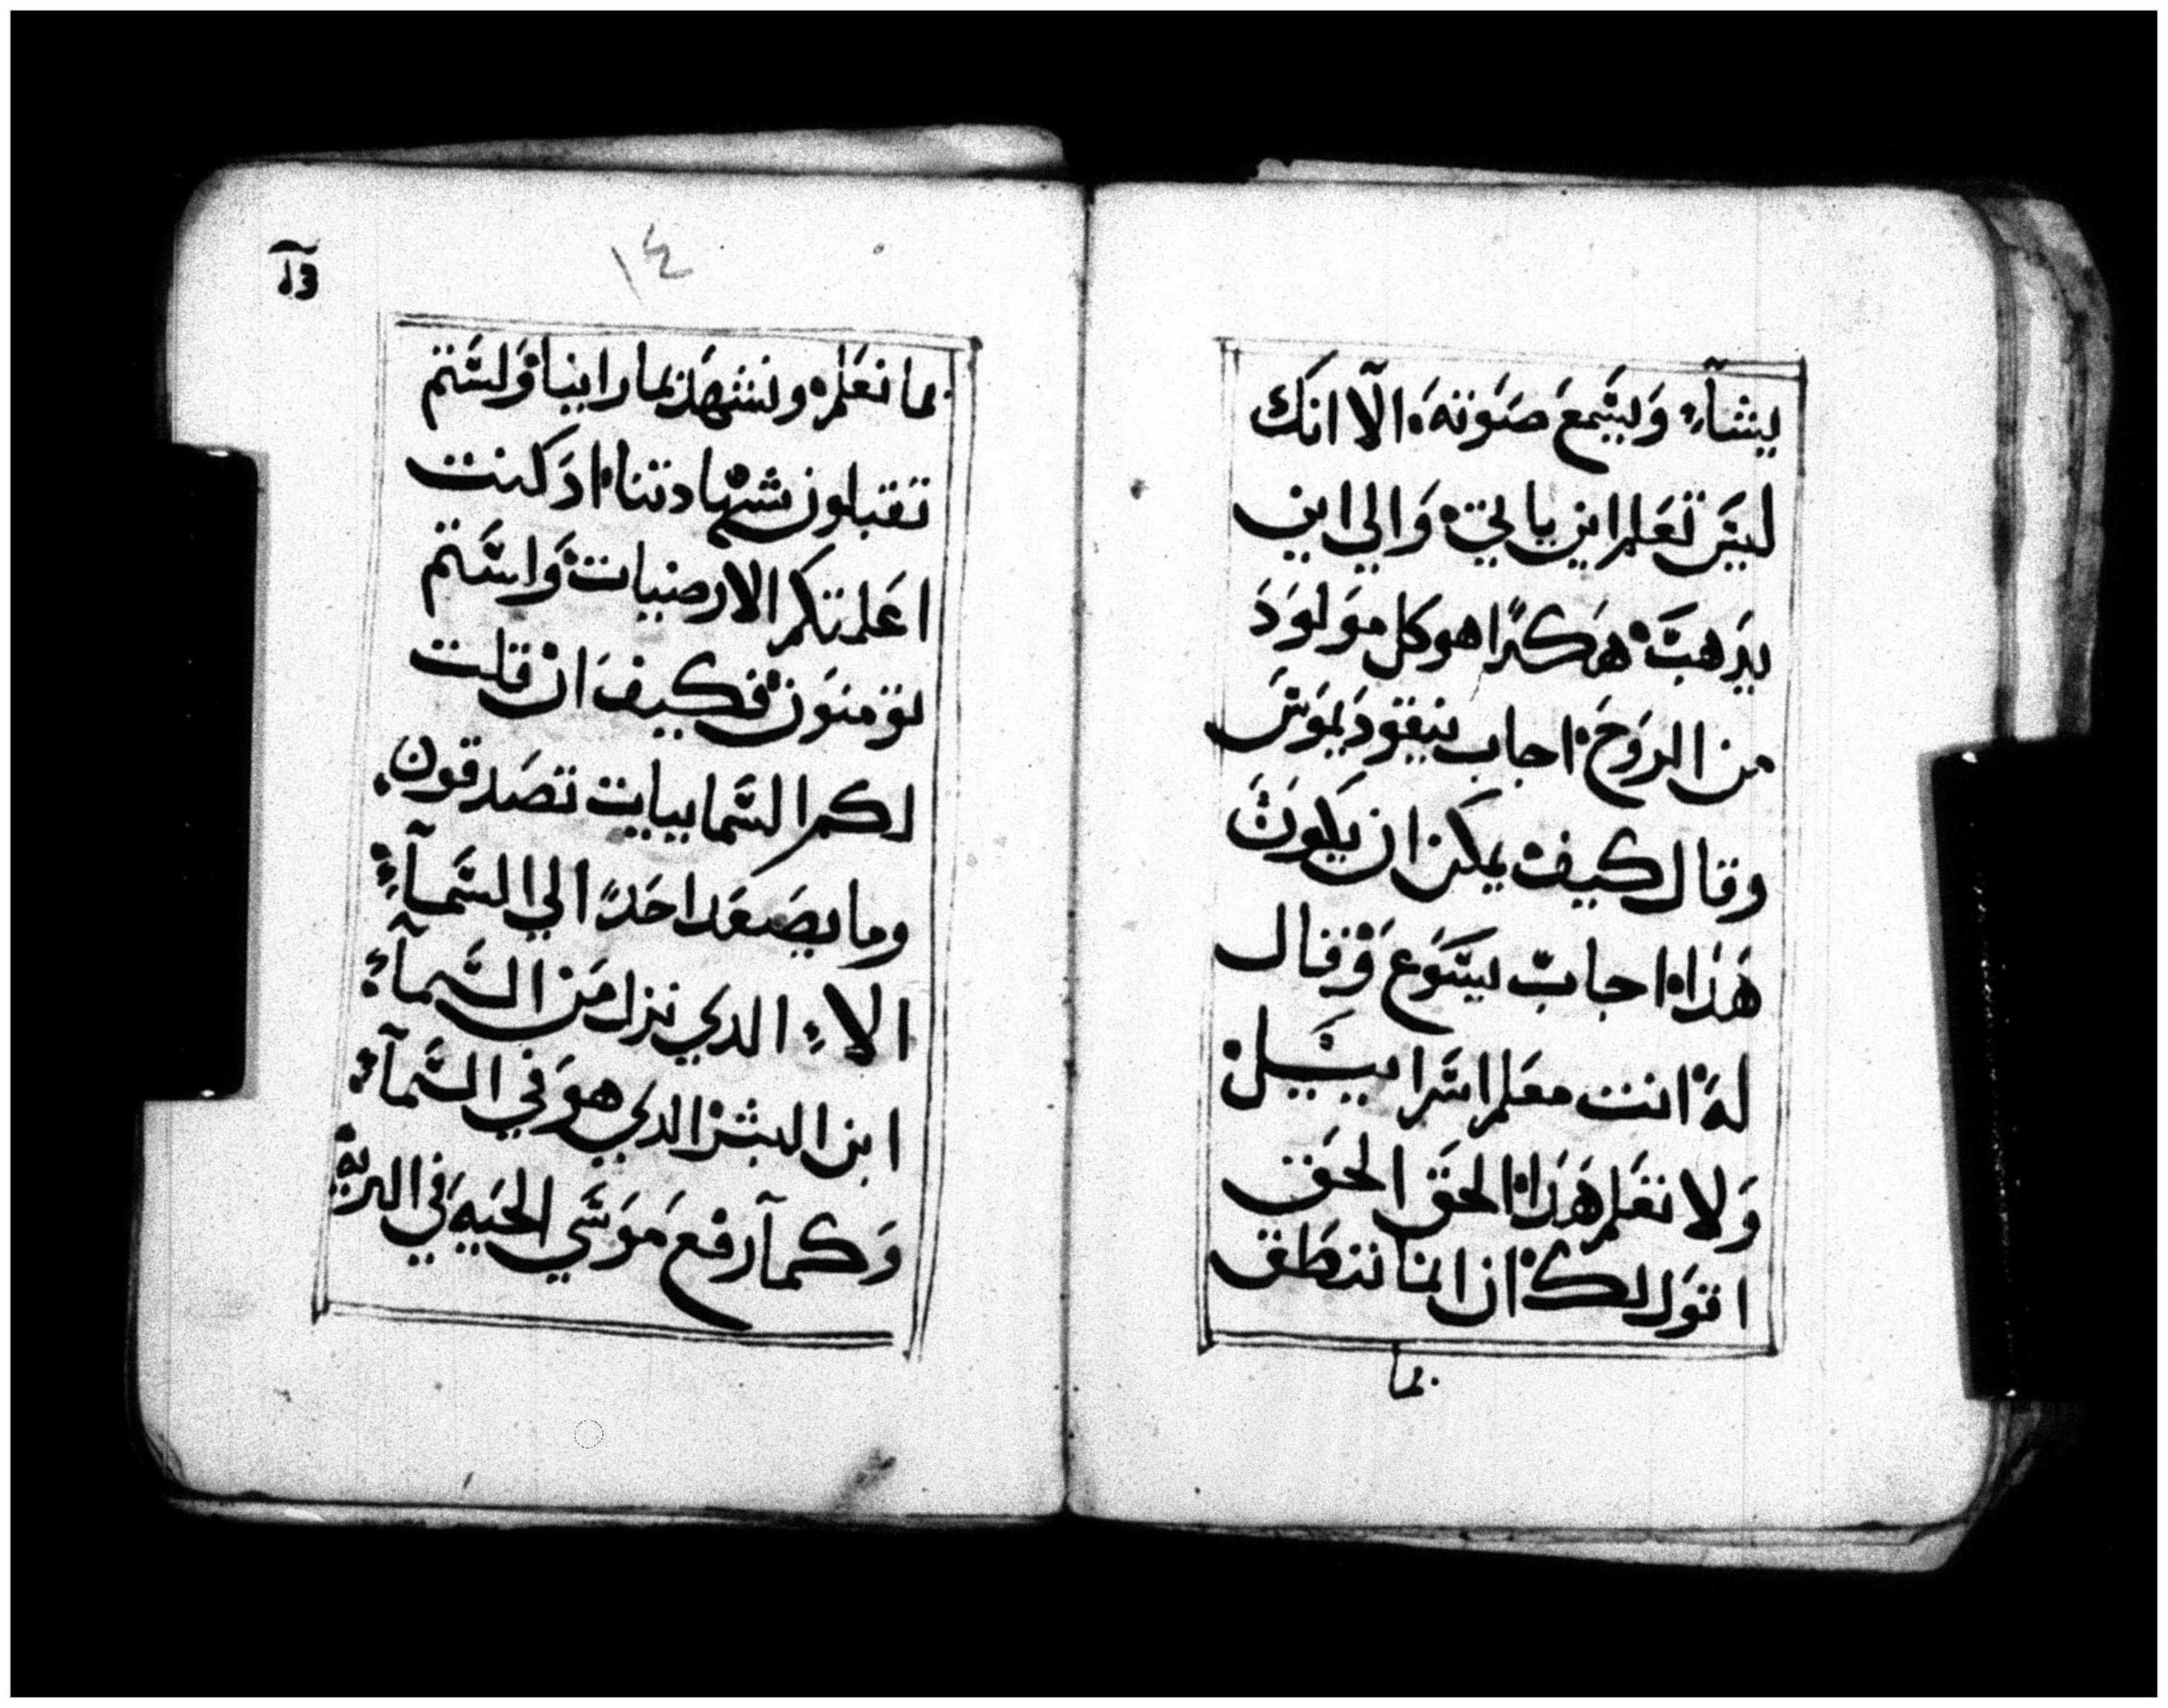 يشآء وَليَسَمعَ صَوتهَ الّآ انكَ
ليَسَ تَعَلم اين ياتي وَالي اين
يدَهبَ هَكدًا هو كل موَلوَدَ
من الروَحَ اجاب نيقودَيموَسَ
وقال كيف يمكن ان يكَوَنَ
هَدا اجابَ يسَوَع وَقال
لهَ انت معَلم اسَراييَيل
وَلا تعَلم هَدَا الحقَ الحَق
اقوَل لك ان اننا ننطَق
بما
١٤
بما نعَلم ونشهَد بما راينا وَلسَتم
تقبلون شهادتنا ادَ كنت
اعَلمتكم الارضيات وَلسَتم
تؤمنوَن فكيفَ ان قلت
لكم السَماييات تصَدقون
وما يصَعَد احَدً الي السَمآء
الاء الدي نزل مَن السَمآء
ابن البشر الدي هوَ في السَمآء
وَكمآ رفع مَوسَي الحَيهَ في البريه